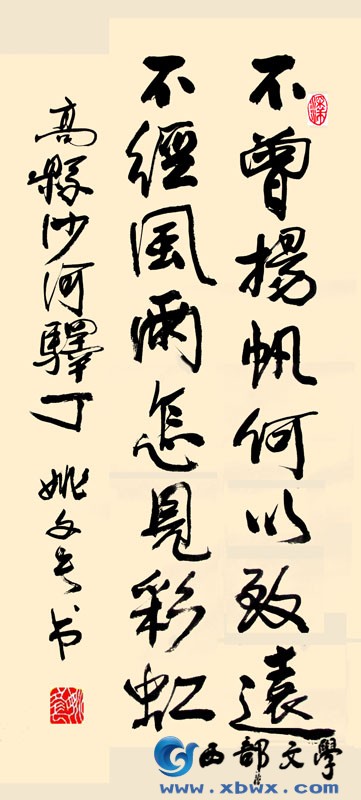 不曾揚帆何以致遠
不經風雨怎見彩虹
高縣沙河驛丁
姚文長书
西部文學
www.xbwx.cn